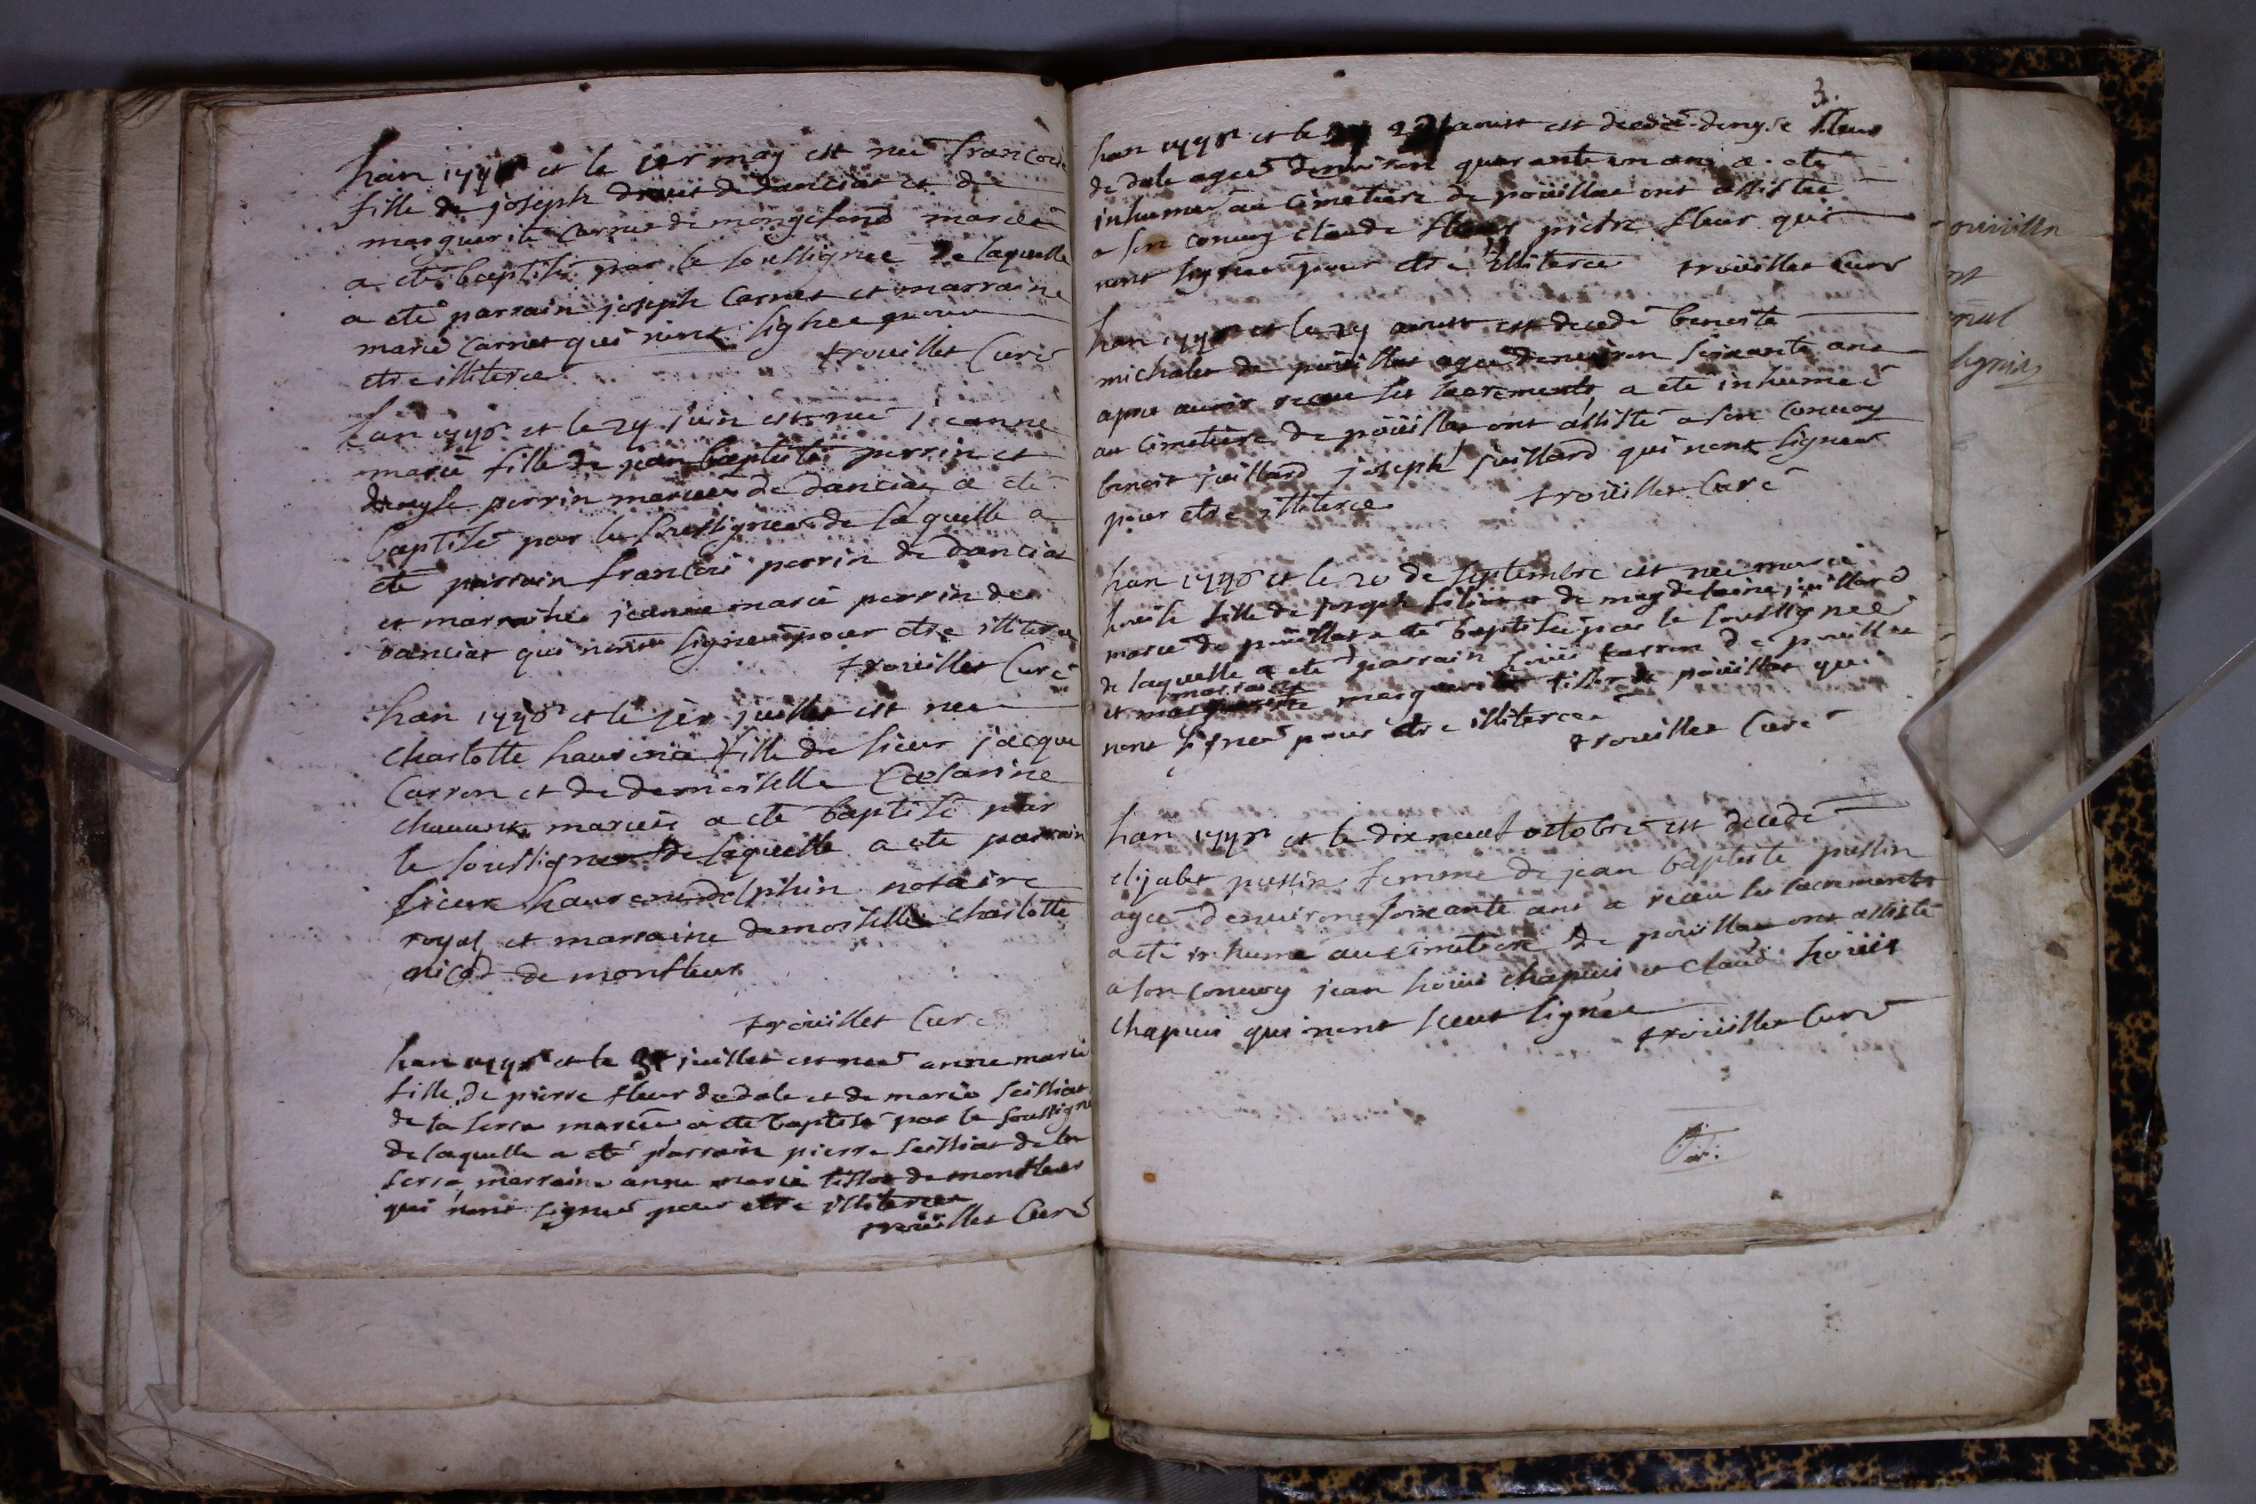 han et le 1er may est née francoise
fille de joseph drüit de danciat et de
marguerite Carnet de mongefond mariée
a eté baptisé par le soussignee de laquelle
a eté parrain joseph Carnet et marraine
marie Carnet qui nont signee pour
etre illiteree trouillet Curé
han et le 24 juin est née jeanne
marie fille de jean baptiste perrin et
denyse perrin mariees de danciat a eté
baptisé par le soussignee de laquelle a
eté parrain francois perrin de danciat
et marraine jeanne marie perrin de
danciat qui nont signeé pour etre illiteree
trouillet Curé
han et le 1er juillet est neé
charlotte laurence fille de sieur jacque
Carron et de demoiselle
mariées a eté baptisé par
le soussignee de laquelle a eté parrain
sieur laurent delphin notaire
royal et marraine demoiselle charlotte
nicod de monfleur
trouillet Curé
han et le juillet est neé anne marie
fille de pierre fleur de dole et de marie seilliat
de la serra mariée a eté baptisé par le soussigne
de laquelle a eté parrain pierre seilliat de la
serra marraine anne marie tillot de monfleur
qui nont signeé pour etre illiteree
trouillet Curé
3.
han et le aoust est decedé denyse fleur
de dole ageé denviron quarante un ans a eté
inhumé au Cimetiere de poüillat ont assistee
a son convoy claude fleur pietre fleur qui
nont signee pour etre illiteree trouillet Curé
han et le 24 aoust est decedé benoite
michalet de poüillat ageé denviron soixante ans
apres avoir receu les sacrements, a eté inhumeé
au Cimetiere de poüillat ont assisté a son Convoy
benoit juillard joseph juillard qui nont signeé
pour etre illiteree trouillet Curé
han et le 20 de septembre est neé marie
louise fille de joseph et de magdelaine juillard
marié de poüillat a eté baptisée par le soussigneé
de laquelle a eté parrain loüis carron de poüillat
marraine
et marguerite marguerite tillet de poüillat qui
nont signeé pour etre illiteree
trouillet Curé
han et le dix neuf octobre est decedé
elizabet pussin femme de jean baptiste pussin
ageé denviron soixante ans a receu les sacrements
a eté inhumé au cimetiere de poüillat ont assisté
a son convoy jean loüis chapuis et claude loüis
chapuis qui nont sceut signee
trouillet Curé